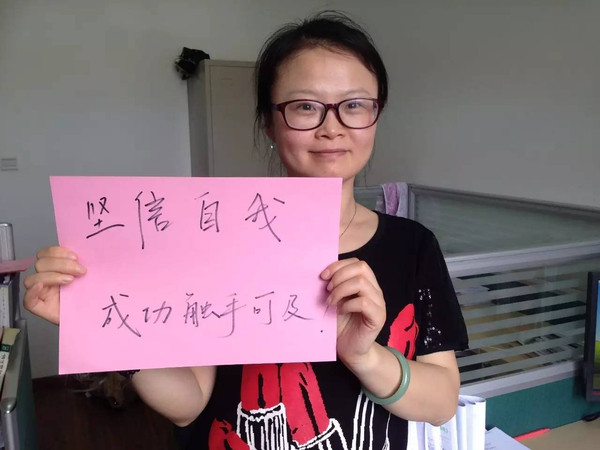 坚信自我
成功触手可及!